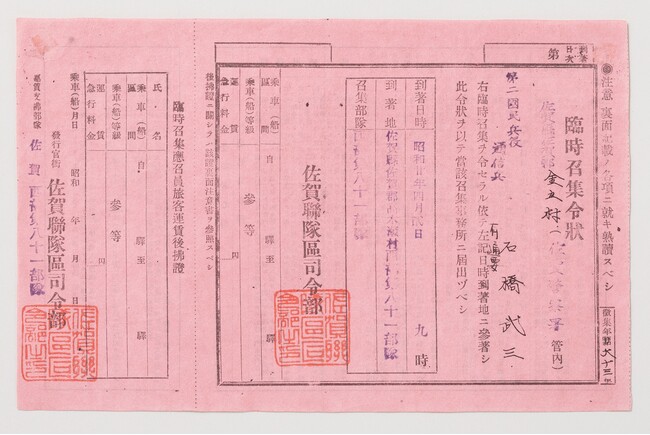 到著
第
●注意 裏面記載ノ各項ニ就キ熟讀スベシ
徴集年 大十三年
臨時召集令狀
金立村
管內)
第二國民兵役
石橋武三
右臨時召集ヲ令セラル依テ左記日時到著地ニ參著シ
此令狀ヲ以テ當該召集事務所ニ屆出ヅベシ
到著日時 昭和廿年四月 日 九時
到著地 佐賀縣佐賀郡 村 第八十一部隊
召集部隊 第八十一部隊
佐賀聯隊區司令部
區間 自 驛至 驛
乘車(船)等級 參等
運賃 円
急行料金
後拂證ニ關シテハ 裏面注意書ヲ參照スベシ
臨時召集應召員旅客運賃後拂證
氏名
乘車(船)區間 自 驛至 驛
乘車(船)等級 參等
運賃 円
急行料金
乘車(船)月日 昭和 年 月 日
發行官衙 佐賀聯隊區司令部
運賃支拂部隊 佐賀 西部第八十一部隊